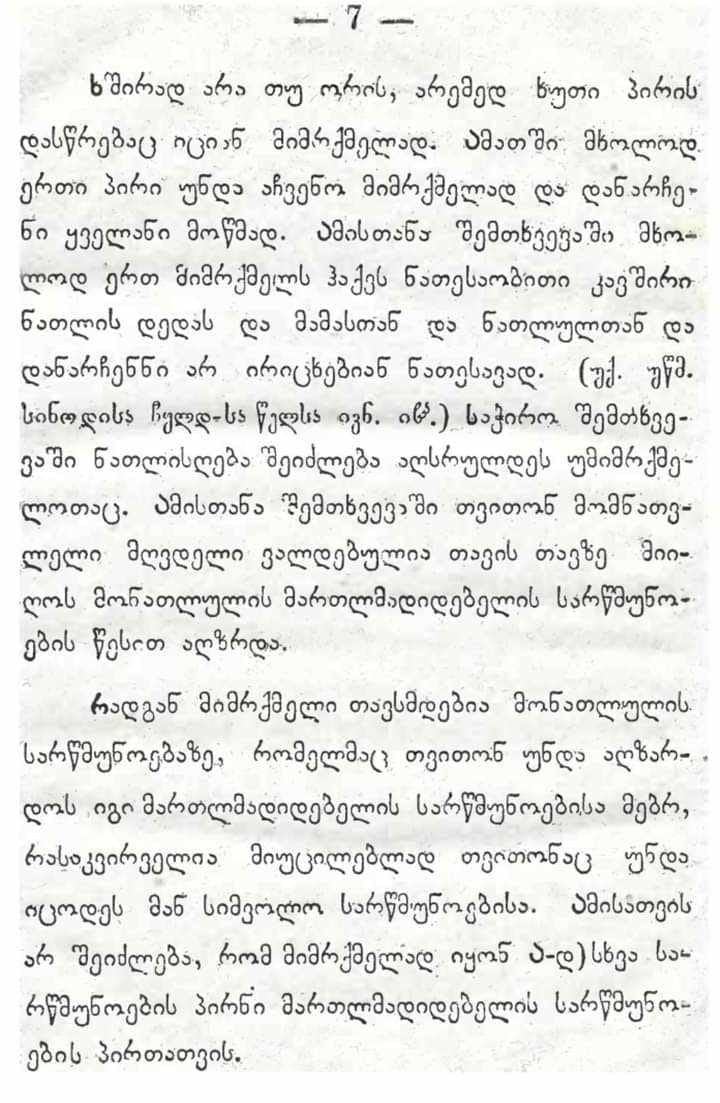 — 7 —
ხშირად არა თუ ორის, არემედ ხუთი პირის
დასწრებაც იციან მიმრქმელად. ამათში მხოლოდ
ერთი პირი უნდა აჩვენო მიმრქმელად და დანარჩე-
ნი ყველანი მოწმად. ამისთანა შემთხვევაში მხო-
ლოდ ერთ მიმრქმელს ჰაქვს ნათესაობითი კავშირი
ნათლის დედას და მამასთან და ნათლულთან და
დანარჩენნი არ ირიცხებიან ნათესავად. (უქ. უწმ.
სინოდისა წელსა ივნ.) საჭირო შემთხვე-
ვაში ნათლისღება შეიძლება აღსრულდეს უმიმრქმე-
ლოთაც. ამისთანა შემთხვევაში თვითონ მომნათვ-
ლელი მღვდელი ვალდებულია თავის თავზე მიი-
ღოს მონათლულის მართლმადიდებელის სარწმუნო-
ების წესით აღზრდა.
რადგან მიმრქმელი თავსმდებია მონათლულის
სარწმუნოებაზე, რომელმაც თვითონ უნდა აღზარ-
დოს იგი მართლმადიდებელის სარწმუნოებისა მებრ,
რასაკვირველია მიუცილებლად თვითონაც უნდა
იცოდეს მან სიმვოლო სარწმუნოებისა. ამისათვის
არ შეიძლება, რომ მიმრქმელად იყონ ა-დ) სხვა სა-
რწმუნოების პირნი მართლმადიდებელის სარწმუნო-
ების პირთათვის.